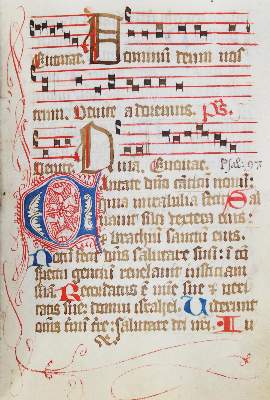 Euouae. Dominum deum nos
trum. Venite adoremus. Ps.
Venite. Quia. Euouae. Psal: 97
Cantate dno canticu nouu:
quia mirabilia fecit. Sal
uauit sibi dextera eius:
brachium sanctum eius.
Notu fecit dns salutare suu: i co
spectu gentiu reuelauit iusticiam
sua. Recordatus e mie sue & veri
tatis sue: domui israhel. Viderunt
oms fini tre: salutare dei nri. Iu